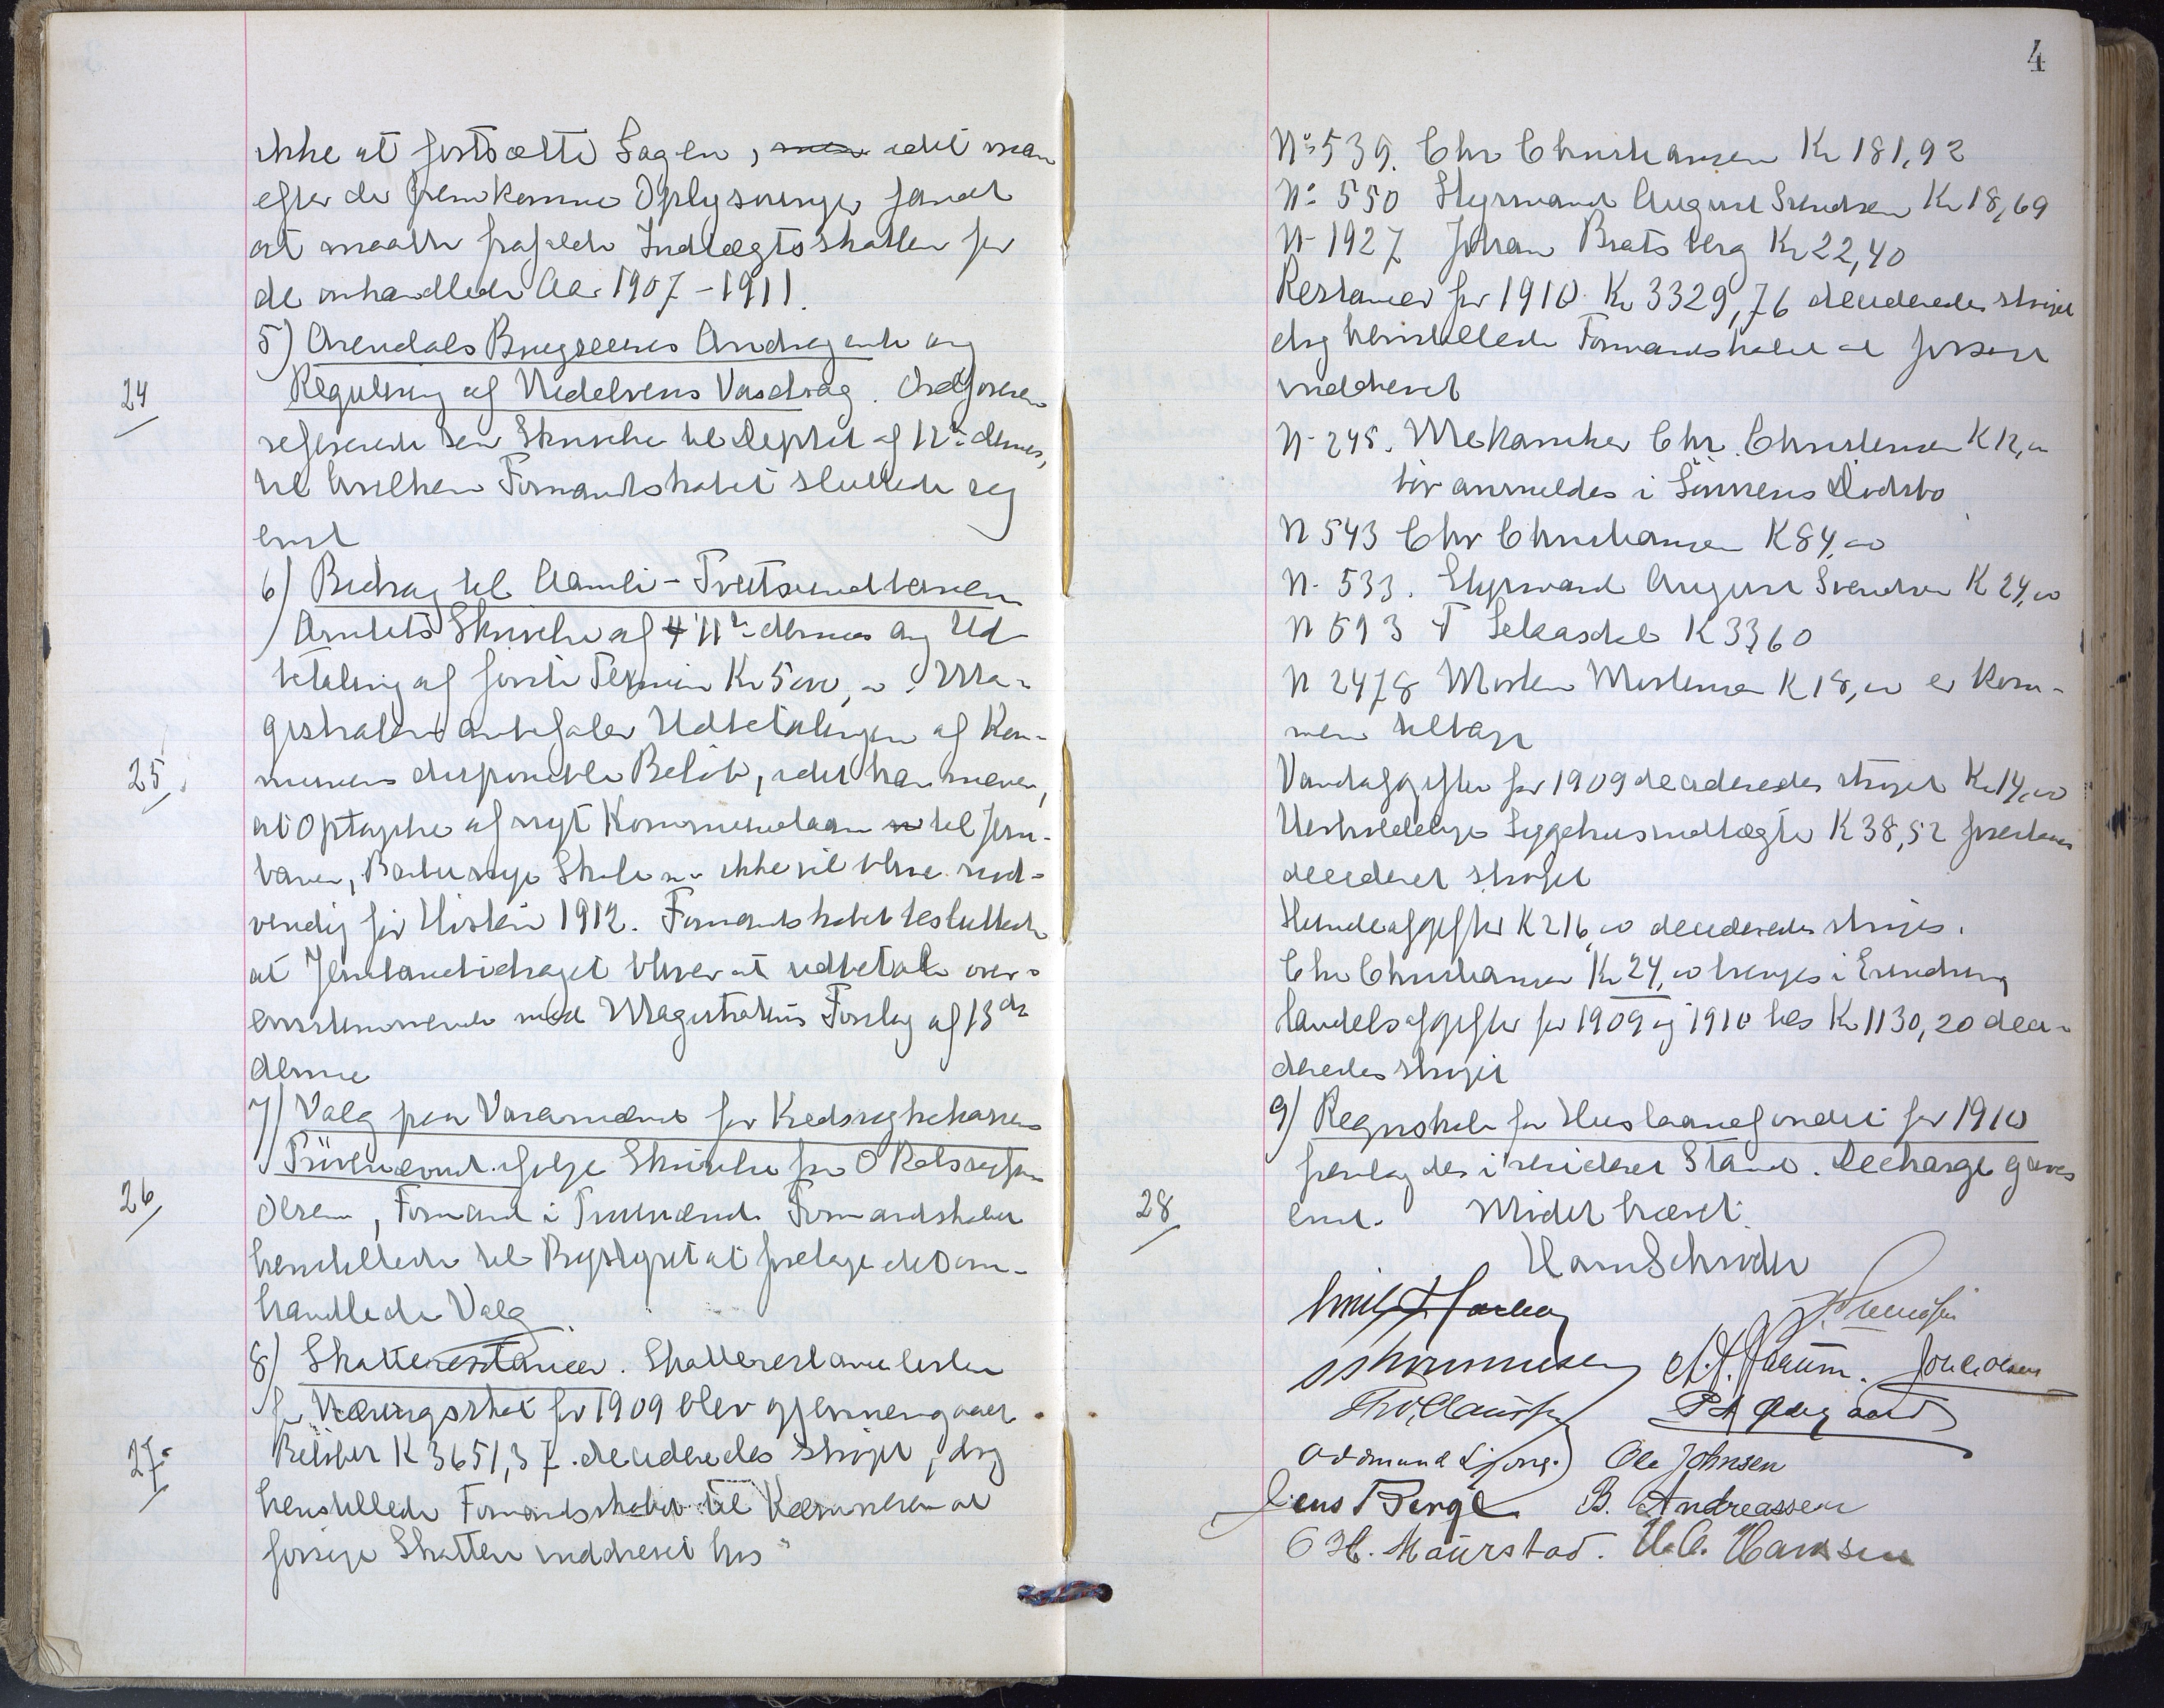 ikke at fortsætte Sagen, men idet man
efter de fremkomne Oplysninger fandt
at maatte frafalde Indtægtsskatten for
de omhandlede Aar 1907-1911.
5) Arendals Brugseieres Andragende ang
24
Regulering af Nidelvens Vasdrag. Ordføreren
refererede sin Skrivelse til Deptet af 12te dennes,
til hvilken Formandskabet sluttede sig
enst
6) Bidrag til Aamli-Tveitsundbanen
Amtets Skrivelse af 11te dennes ang Ud-
betaling af første Termin Kr 5000,00. Ma-
gistraten anbefaler Udbetalingen af Kom-
25
munens disponible Beløb, idet han mener,
at Optagelse af nyt Kommunelaan til Jern-
banen, Barbu nye Skole m.v. ikke vil blive nød-
vendig før Høsten 1912. Formandskabet besluttede
at Jernbanebidraget bliver at udbetale over-
ensstemmende med Magistratens Forslag af 13de
dennes
7) Valg paa Varamænd for Kredssygekassens
Prøvenævnd ifølge Skrivelse fra O.Retssagfører
26
Olsen, Formand i Prøvenævnd. Formandskabet
henstillede til Bystyret at foretage det om-
handlede Valg
8) Skatterestancer. Skatterestancelisten
for Næringsskat for 1909 blev gjennemgaaet
27
Beløbet K 3651,37 decideredes strøget, dog
henstillede Formandskabet til Kæmneren at
forsøge Skatten inddrevet hos
4
No 539. Chr Christiansen Kr 181,92
No 550 Styrmand August Svendsen Kr 18,69
N 1927 Johan Bratsberg Kr 22,40
Restancer for 1910 Kr 3329,76 decideredes strøget
dog henstillede Formandskabet at forsøge
inddrevet
N 245. Mekaniker Chr. Christensen K 12,00
bør anmeldes i Sønnens Dødsbo
N 543 Chr Christiansen K 84,00
N. 533. Styrmand August Svendsen K 24,00
N 593 T K 33,60
N 2478 Morten Mortensen K 18,00 er kom-
men tilbage
Vandafgifter for 1909 decideredes strøget Kr 14,00
Uerholdelige Sygehusindtægter K 38,52
decideret strøget
Hundeafgifter K 216,00 decideredes strøges.
Chr Christiansen Kr 24,00 bringes i Erindring
Handelsafgifter for 1909 og 1910 Kr 1130,20 deci-
deredes strøget
9) Regnskab for Huslaanefondet for 1910
fremlagdes i revideret Stand. Decharge gaves
28
enst. Mødet hævet.
Ole Johnsen
Jens Berge B. Andreassen
Maurstad. Hansen